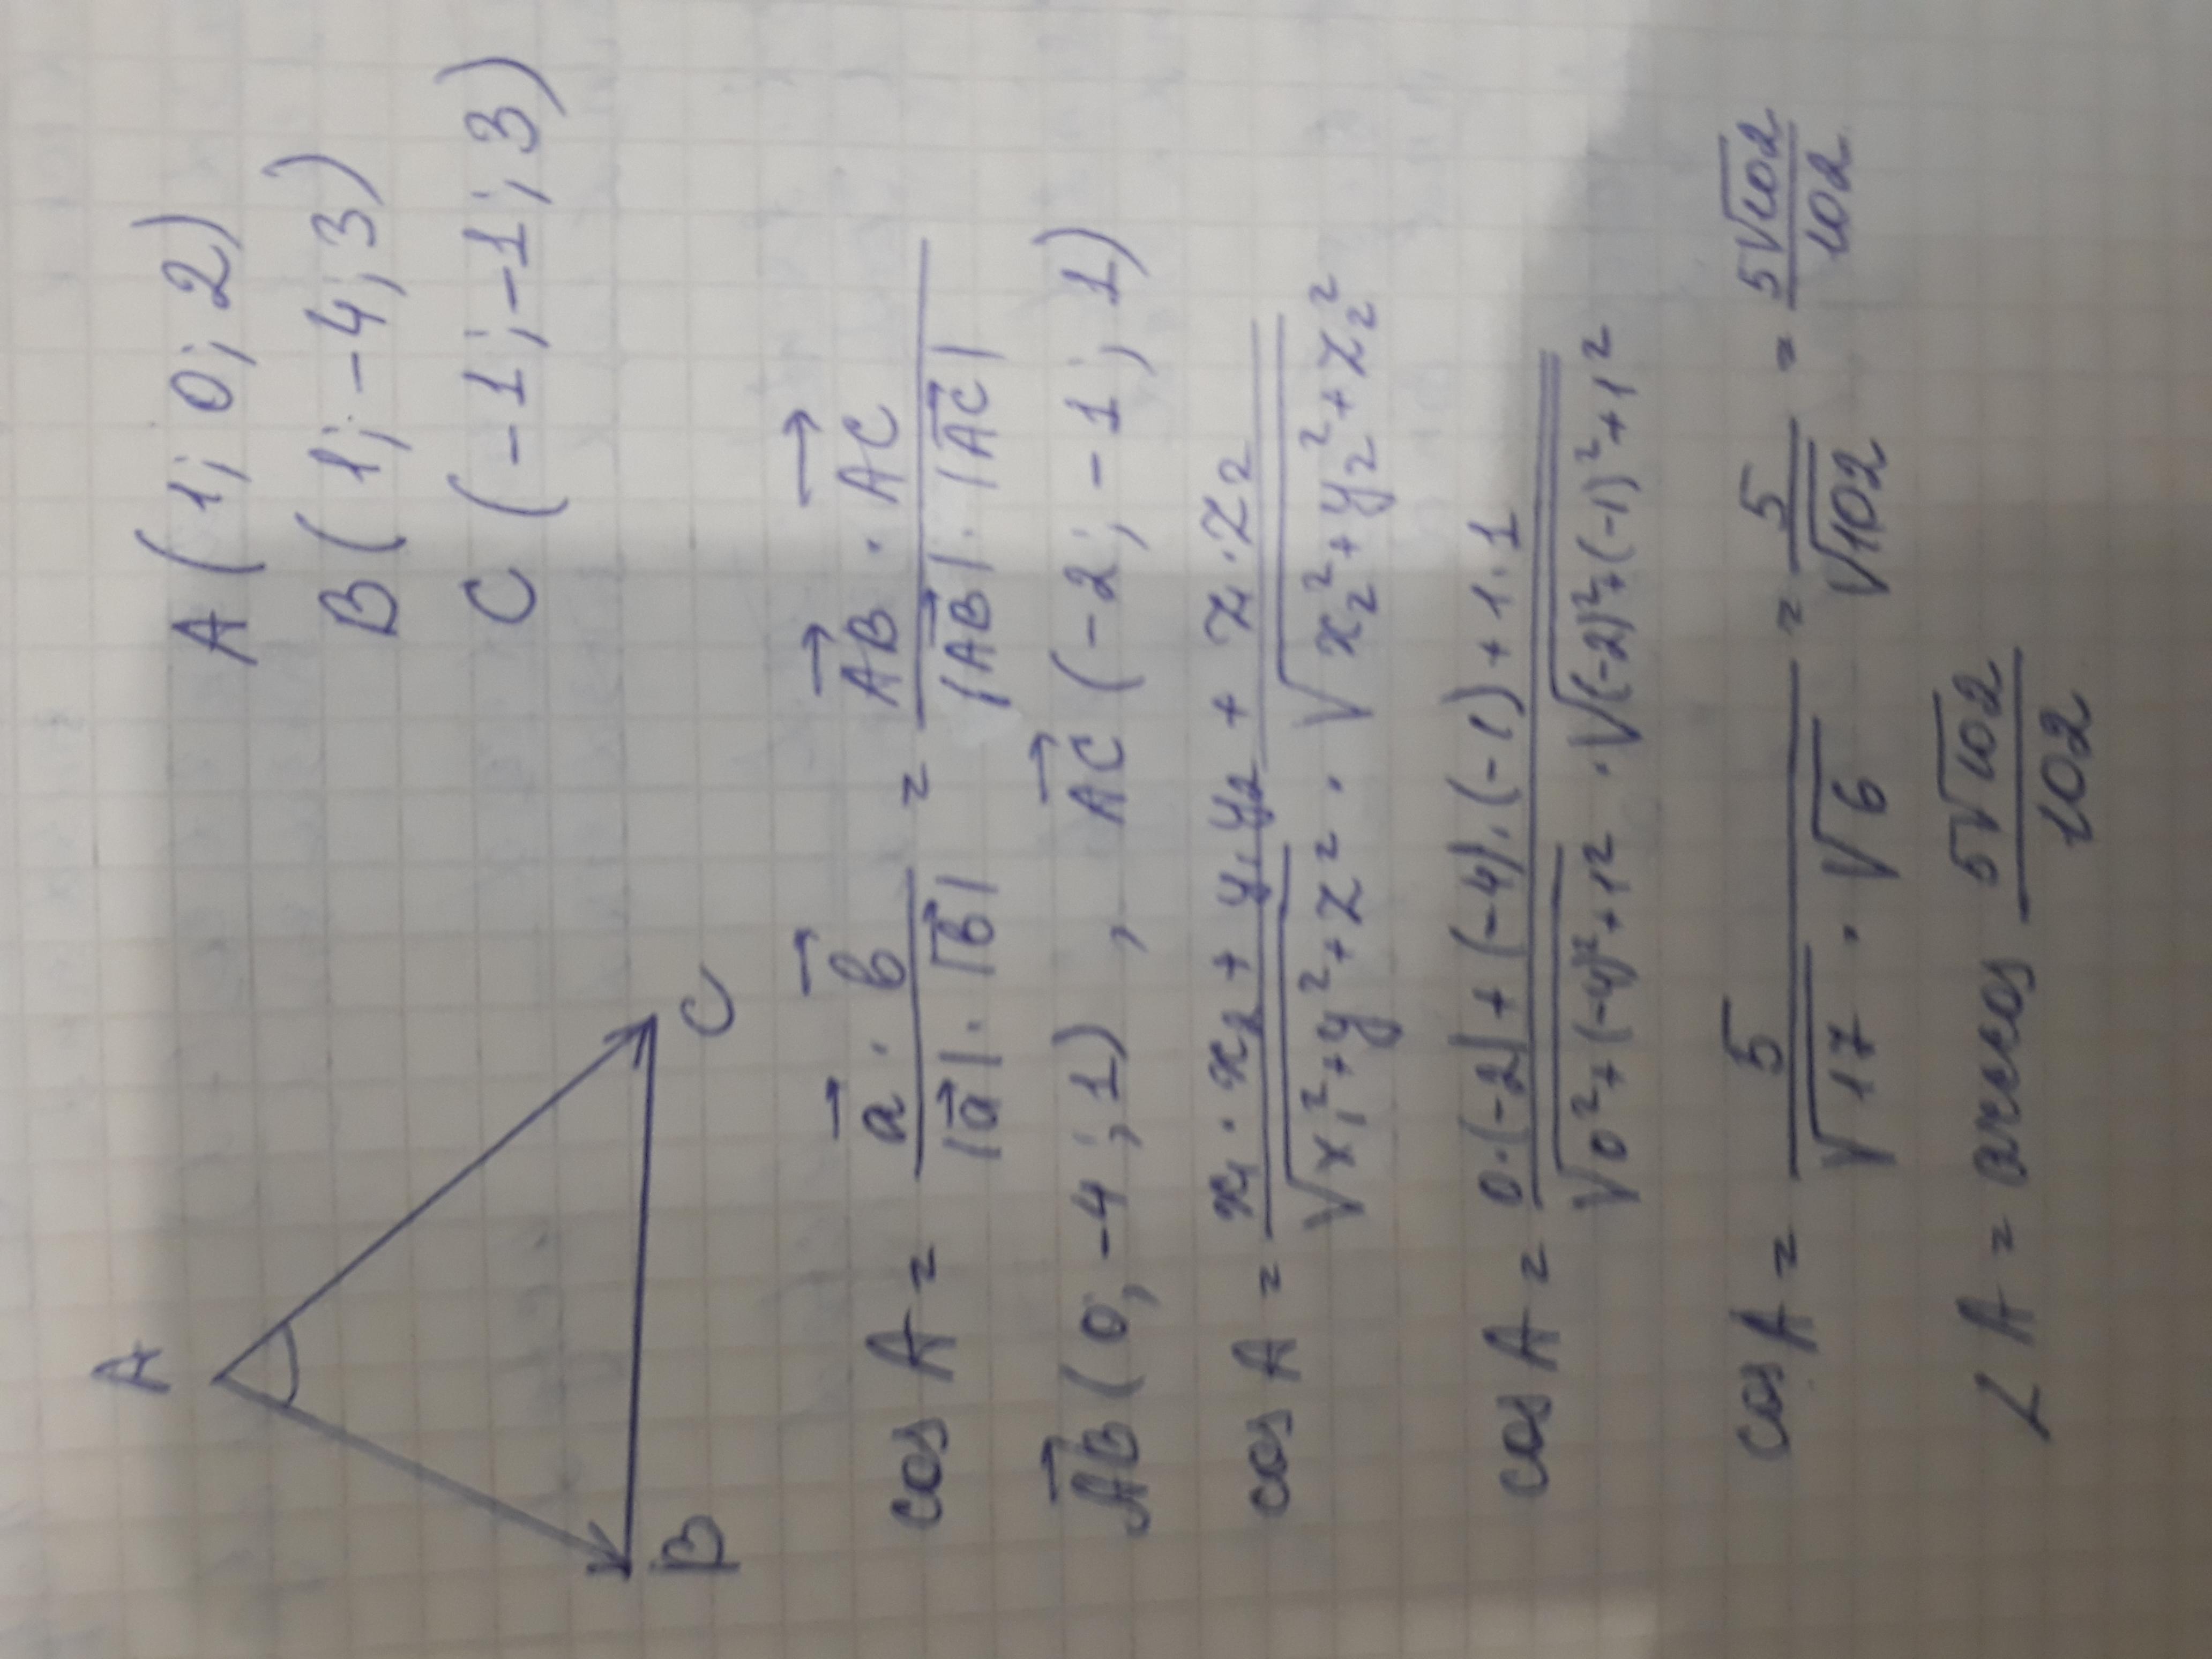 A
B
C
A (1; 0; 2)
B (1; -4; 3)
C (-1; -1; 3)
cos A = \frac{\vec{a} · \vec{b}}{|\vec{a}| · |\vec{b}|} = \frac{\vec{AB} · \vec{AC}}{|\vec{AB}| · |\vec{AC}|}
\vec{AB} (0; -4; 1) , \vec{AC} (-2; -1; 1)
cos A = \frac{x_1 · x_2 + y_1 y_2 + z_1 · z_2}{\sqrt{x_1^2 + y^2 + z^2} · \sqrt{x_2^2 + y_2^2 + z_2^2}}
cos A = \frac{0·(-2) + (-4)·(-1) + 1·1}{\sqrt{0^2 + (-4)^2 + 1^2} · \sqrt{(-2)^2 + (-1)^2 + 1^2}}
cos A = \frac{5}{\sqrt{17} · \sqrt{6}} = \frac{5}{\sqrt{102}} = \frac{5\sqrt{102}}{102}
∠ A = arccos \frac{5\sqrt{102}}{102}